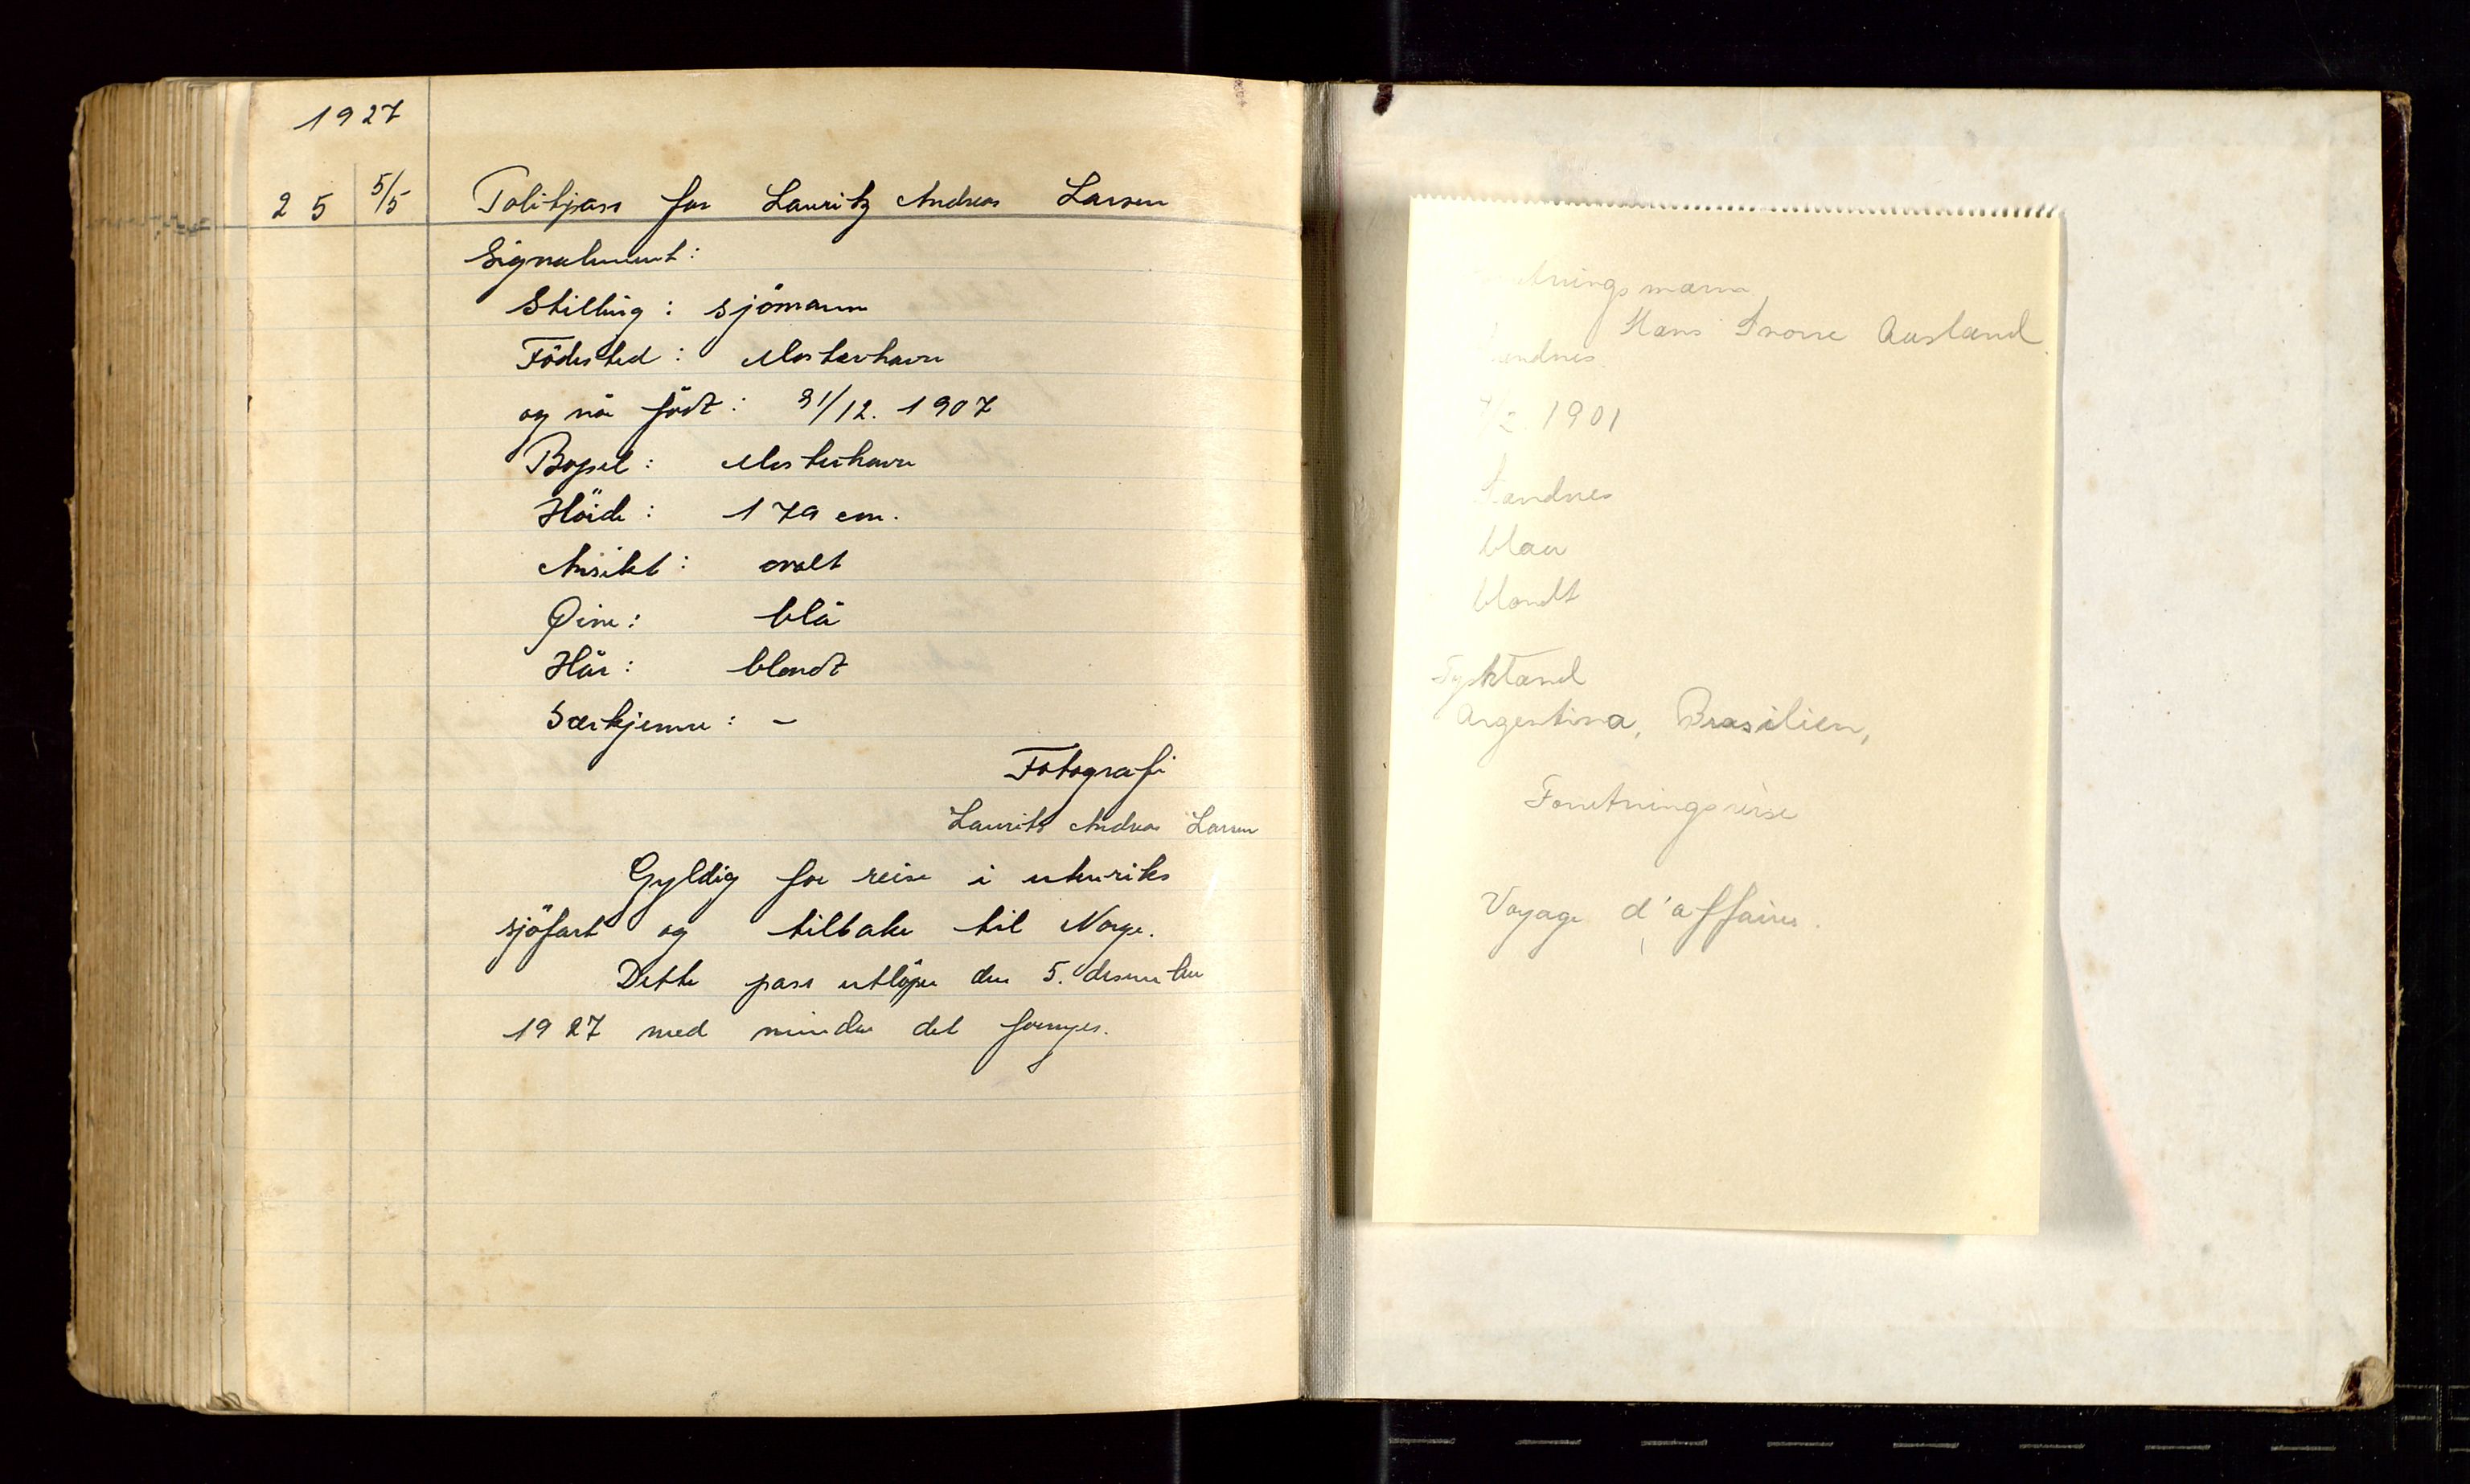 1927
25 5/5 Politipass for Lauritz Andreas Larsen
Signalement:
Stilling: sjömann
Födested: Mosterhavn
og når födt: 31/12. 1907
Bopel: Mosterhavn
Höide: 179 cm.
Ansikt: ovalt
Øine: blå
Hår: blondt
Særkjenne: -
Fotografi
Laurits Andreas Larsen
Gyldig for reise i utenriks
sjöfart og tilbake til Norge.
Dette pass utlöper den 5. desember
1927 med mindre det fornyes.
Hans Snorre Ausland
1901
Sandnes
blaa
blondt
Tyskland
Argentina, Brasilien,
Forretningsreise
Voyage d'affaires.